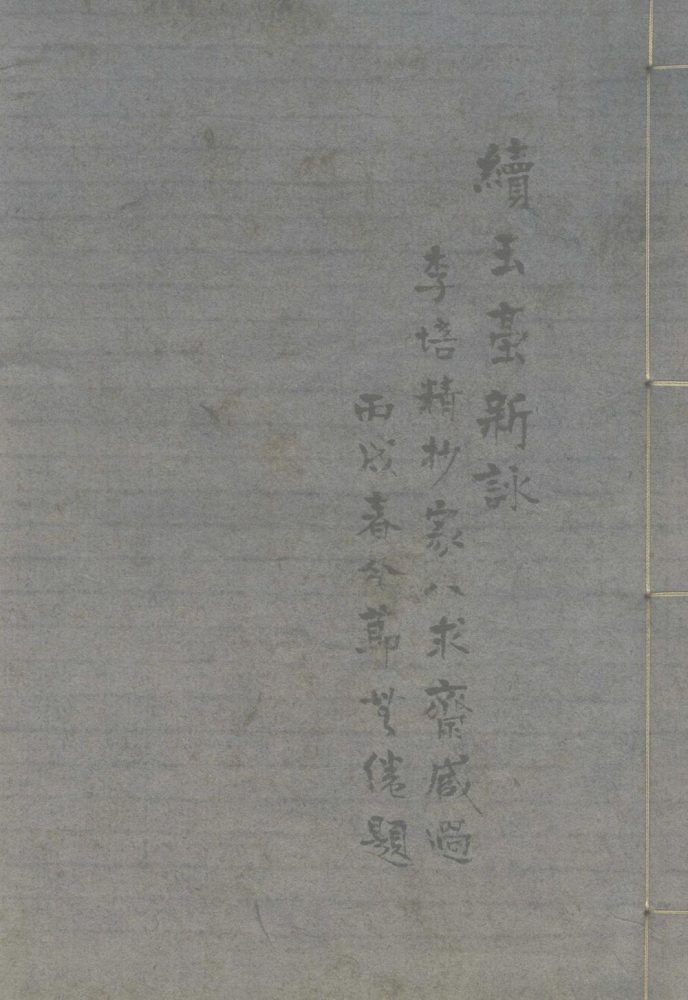 續玉臺新詠
李培精抄家八求齋藏過
丙戌春分節無倦題